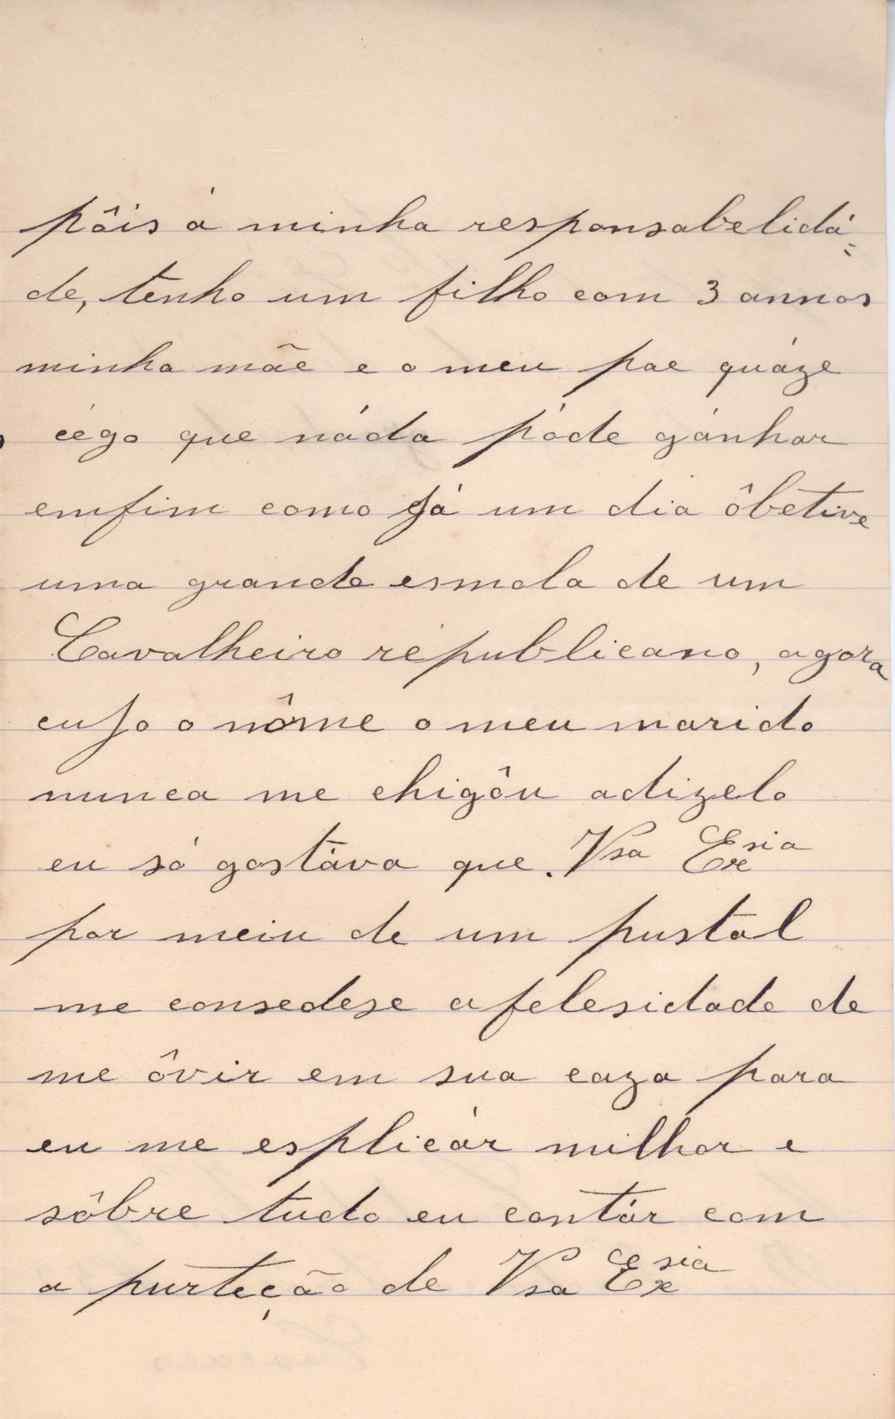 pôis á minha responsabelidá=
de, tenho um filho com 3 annos
minha mãe e o meu pae quáze
cégo que náda póde gánhar
emfim como Já um dia ôbetive
uma grande esmola de um
Cavalheiro républicano, agora
cuJo o nôme o meu marido
nunca me chigôu adizelo
eu só gostáva que. Vsa Exsia
por meiu de um pustal
me consedese a felesidade de
me ôvir em sua caza para
eu me esplicár milhor e
sôbre tudo eu contár com
a purteção de Vsa Exsia